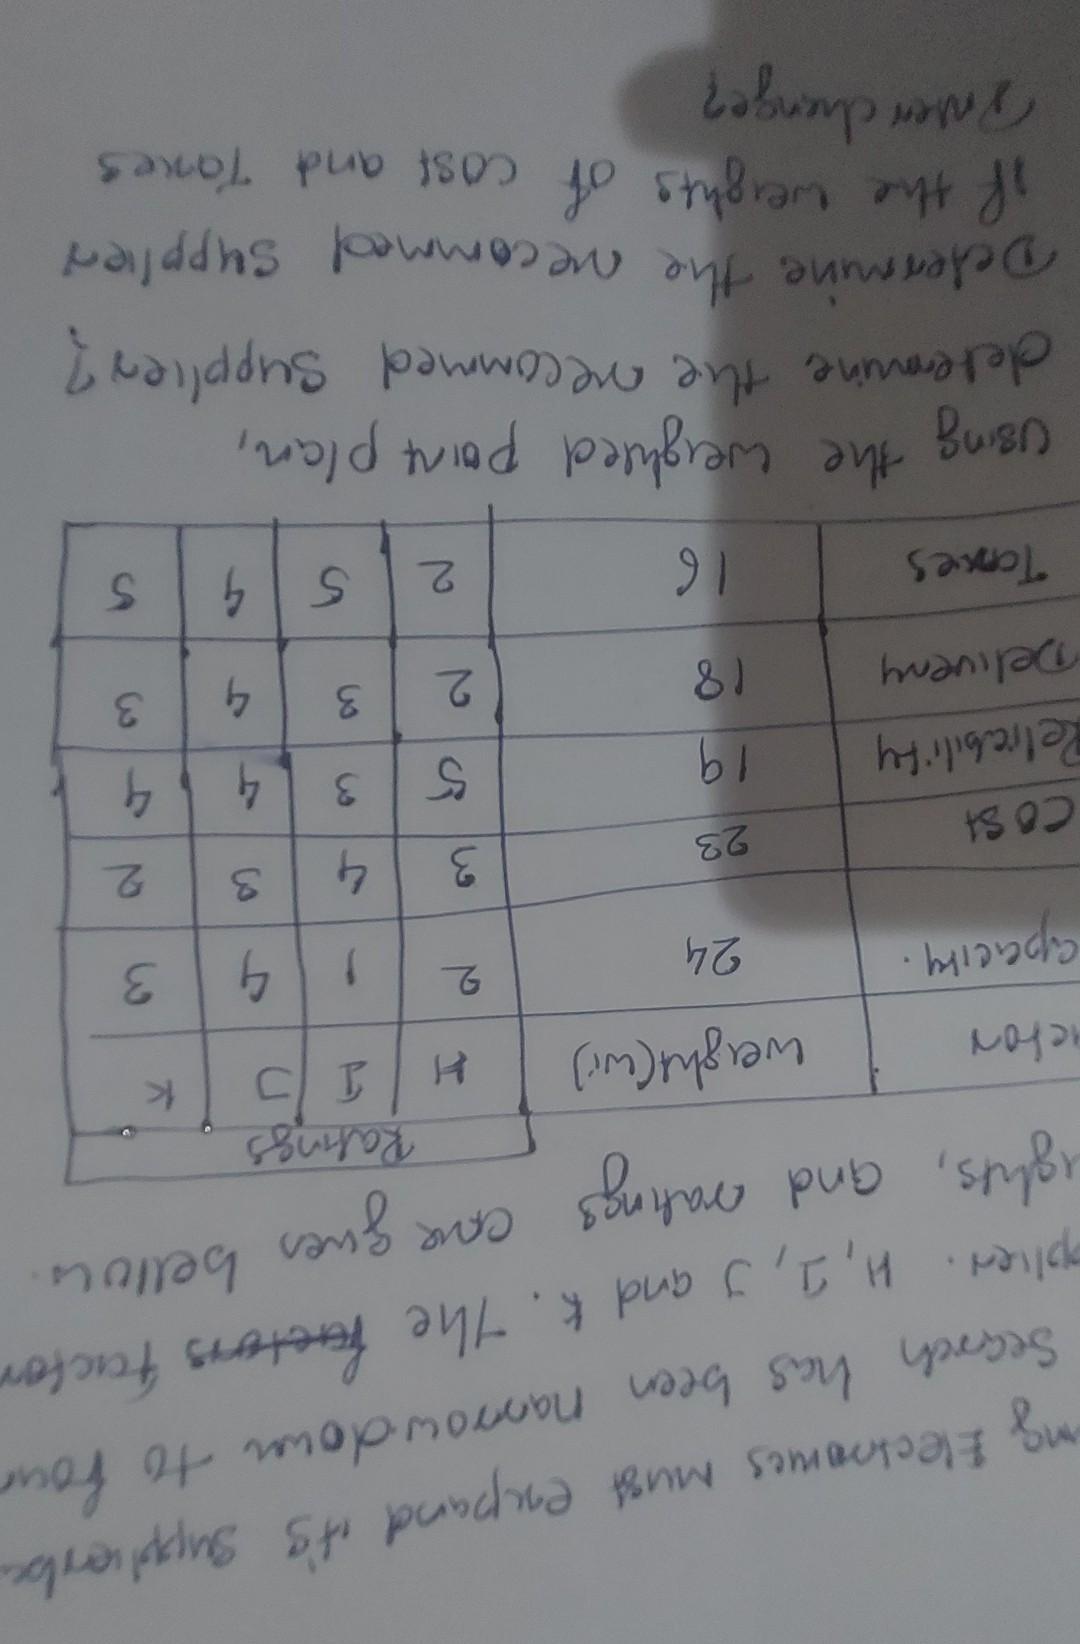 ng Electronics must expand it's supplierba
search has been narrowdown to four
pplier. H, I, J and K. The factors factor
ights, and ratings are given bellow.
Ratings
ctor weight(wi) H I J K
apacity. 24 2 1 4 3
cost 23 3 4 3 2
Reliability 19 5 3 4 4
Delivery 18 2 3 4 3
Taxes 16 2 5 4 5
Using the weighted point plan,
determine the recommed supplier?
Determine the recommed supplier
if the weights of cost and Taxes
Interchange?